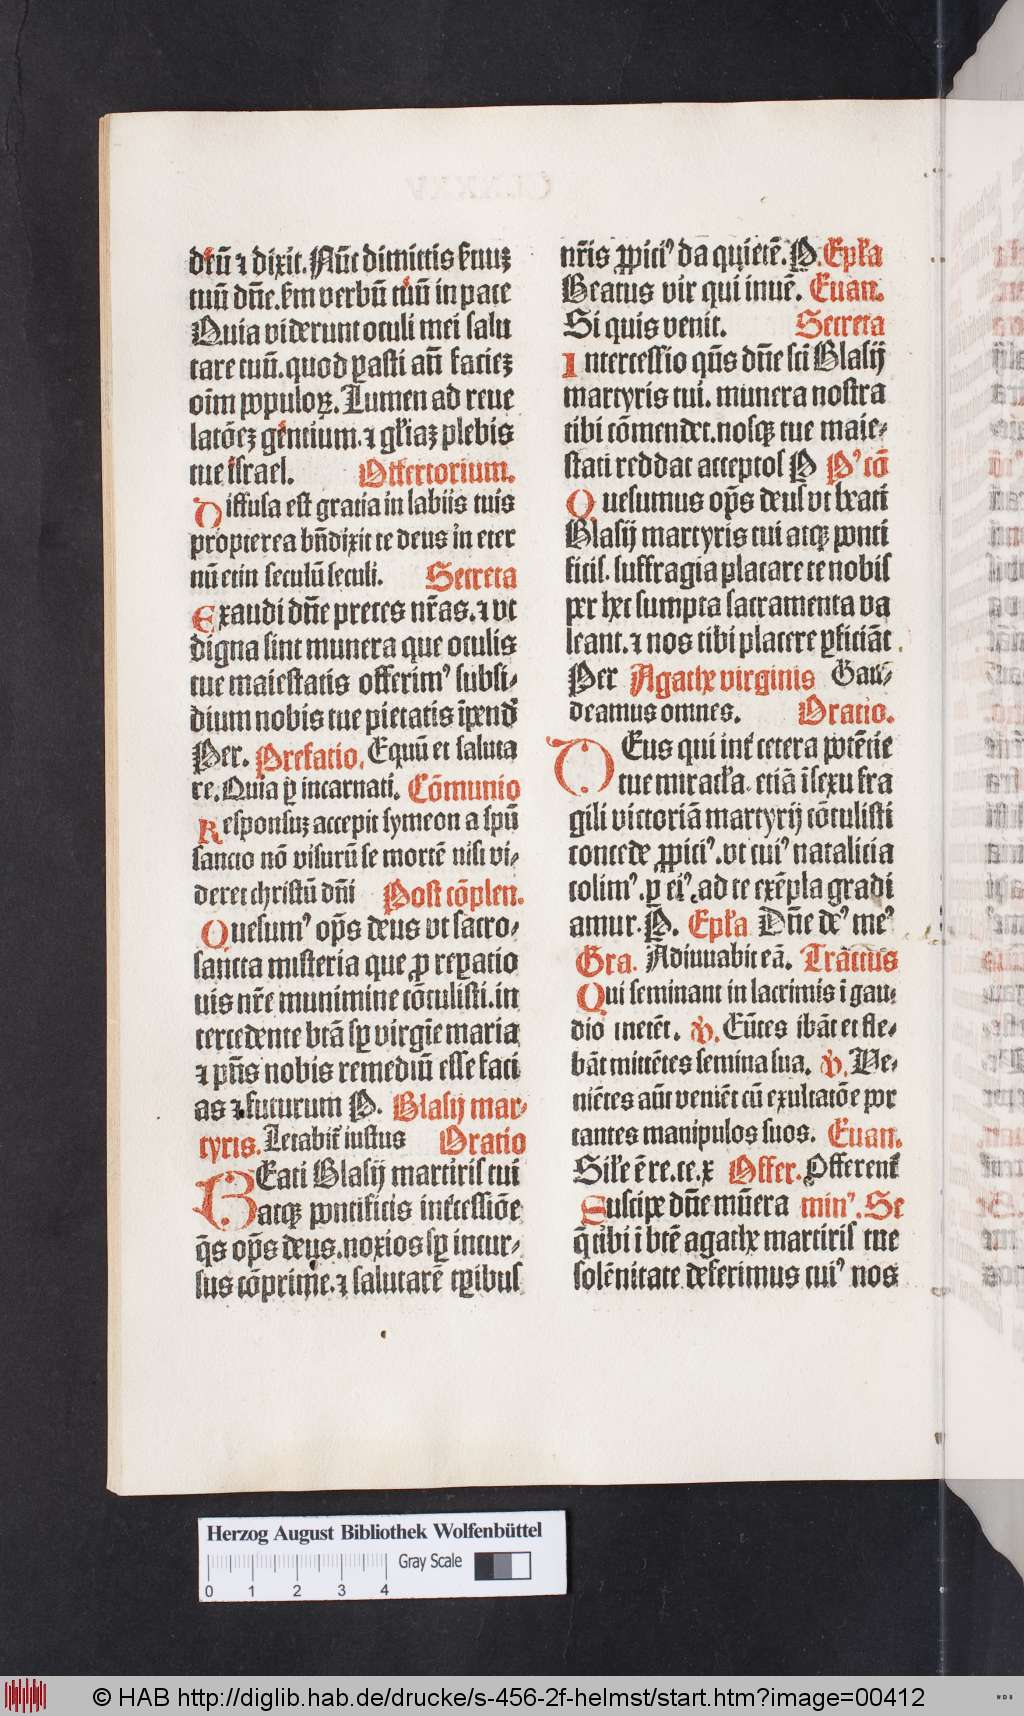 dn̄ū ⁊ dixit. Nūc dimittis ẜuuꝫ
tuū dn̄e. ẜm verbū tuū in pace
Quia viderunt oculi mei salu
tare tuū. quod ꝑasti an̄ facieꝫ
oīm populoꝝ. Lumen ad reue
latōeꝫ gentium. ⁊ gl̄iaꝫ plebis
tue israel. Offertorium.
Diffusa est gratia in labiis tuis
propterea bn̄dixit te deus in eter
nū et in seculū seculi. Secreta
Exaudi dn̄e preces nr̄as. ⁊ vt
digna sint munera que oculis
tue maiestatis offerimꝰ subsi⸗
dium nobis tue pietatis īpend̄
Per. Prefatio. Equū et saluta
re. Quia ꝑ incarnati. Cōmunio
Responsuꝫ accepit symeon a spū
sancto nō visurū se mortē nisi vi⸗
deret christū dn̄i Post cōplen.
Quesumꝰ oꝑ̄s deus vt sacro⸗
sancta misteria que ꝓ reꝑatio
nis nr̄e munimine cōtulisti. in
tercedente btā sꝑ virgīe maria
⁊ pn̄s nobis remediū esse faci
as ⁊ futurum P. Blasij mar⸗
tyris. Letabit̄ iustus Oratio
BEati Blasij martiris tui
atqꝫ pontificis int̄cessiōe
q̄s oꝑ̄s deus. noxios sꝑ incur⸗
sus cōprime. ⁊ salutarē tꝑibus
nr̄is ꝓpiciꝰ da quietē. P. Epl̄a
Beatus vir qui inuē. Euan.
Si quis venit. Secreta
Intercessio qn̄s dn̄e sci Blasij
martyris tui. munera nostra
tibi cōmendet. nosqꝫ tue maie⸗
stati reddat acceptos P Pꝰ cō
Quesumus oꝑ̄s deus vt beati
Blasij martyris tui atqꝫ ponti
ficis. suffragia placare te nobis
per hec sumpta sacramenta va
leant. ⁊ nos tibi placere ꝑficiāt.
Per Agathe virginis Gau⸗
deamus omnes. Oratio.
DEus qui int̄ cetera potētie
tue miracl̄a. etiā ī sexu fra
gili victoriā martyrij cōtulisti
concede ꝓpiciꝰ. vt cuiꝰ natalicia
colimꝰ. ꝑ eiꝰ. ad te exēpla gradi
amur. P. Epl̄a Dn̄e deꝰ meꝰ
Gra. Adiuuabit eā. Tractus
Qui seminant in lacrimis ī gau⸗
dio metēt. ℣. Eūtes ibāt et fle⸗
bāt mittētes semina sua. ℣. Ve⸗
niētes aūt veniēt cū exultatōe por
tantes manipulos suos. Euan.
Sil̄e ē re. ce. x Offer. Offerent̄
Suscipe dn̄e mūera minꝰ. Se
q̄ tibi ī btē agathe martiris tue
solēnitate deferimus cuiꝰ nos
Herzog August Bibliothek Wolfenbüttel
Gray Scale
0 1 2 3 4
© HAB http://diglib.hab.de/drucke/s-456-2f-helmst/start.htm?image=00412